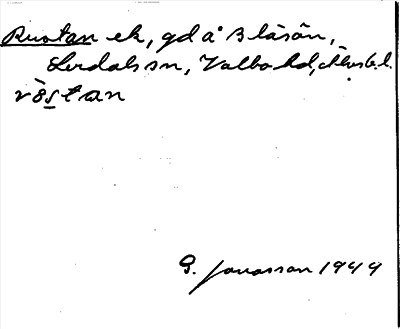 Rustan ek, gd å Blåsån,
Lerdals sn, Valbo hd, Älvsb. l.
rö̀stan
G. Jonasson 1949